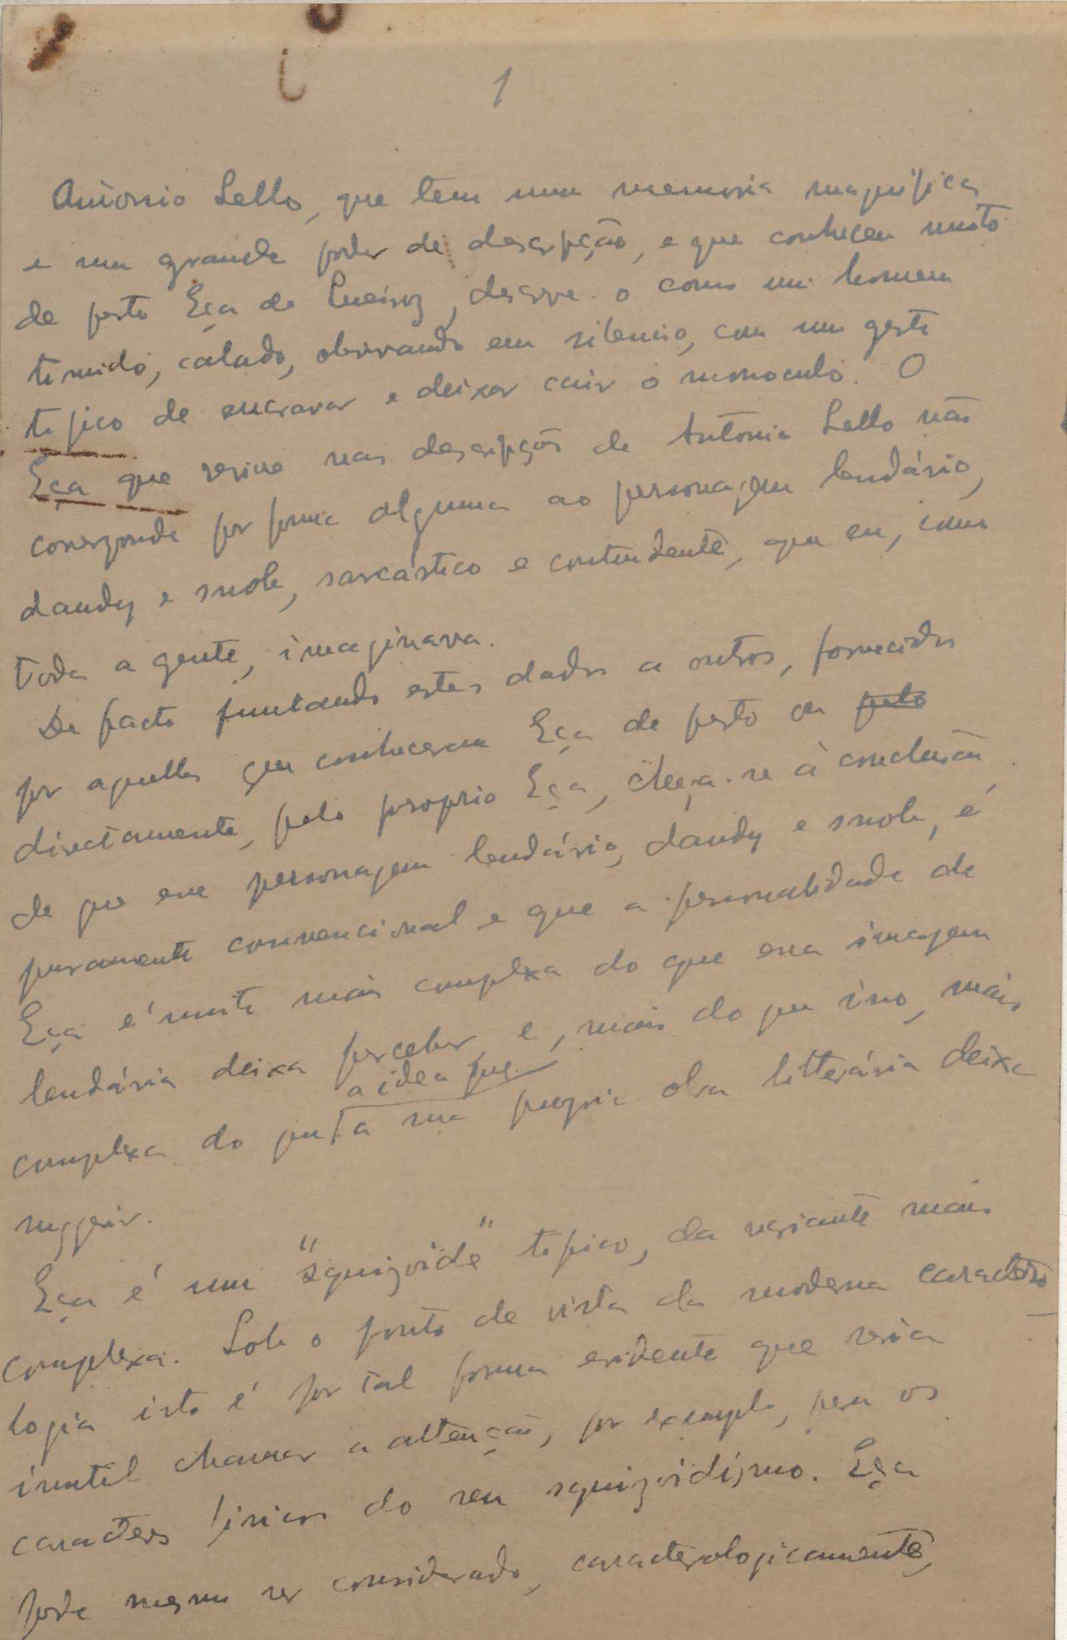 1
Antonio Lello, que tem uma memoria magnifica
e um grande poder de descripção, e que conheceu muito
de perto Eça de Queiroz, descreve-o como um homem
timido, calado, observando em silencio, com um gesto
tipico de encravar e deixar cair o monoculo. O
Eça que revive nas descripções de Antonio Lello não
corresponde por forma alguma ao personagem lendário,
dandy e snob, sarcástico e contundente, que eu, como
toda a gente, imaginava.
De facto juntando estes dados a outros, fornecidos
por aquelles que conheceram Eça de perto ou pelo
directamente, pelo proprio Eça, chega-se à conclusão
de que esse personagem lendário, dandy e snob, é
puramente convencional e que a personalidade de
Eça é muito mais complexa do que essa imagem
lendária deixa perceber e, mais do que isso, mais
a idea que
complexa do que a sua propria obra litterária deixa
suggerir.
Eça é um "squizoide" tipico, da variante mais
complexa. Sob o ponto de vista da moderna caractero
logia isto é por tal forma evidente que seria
inutil chamar a attenção, por exemplo, para os
caracteres fisicos do seu squizoidismo. Eça
pode mesmo ser considerado, caracterologicamente,